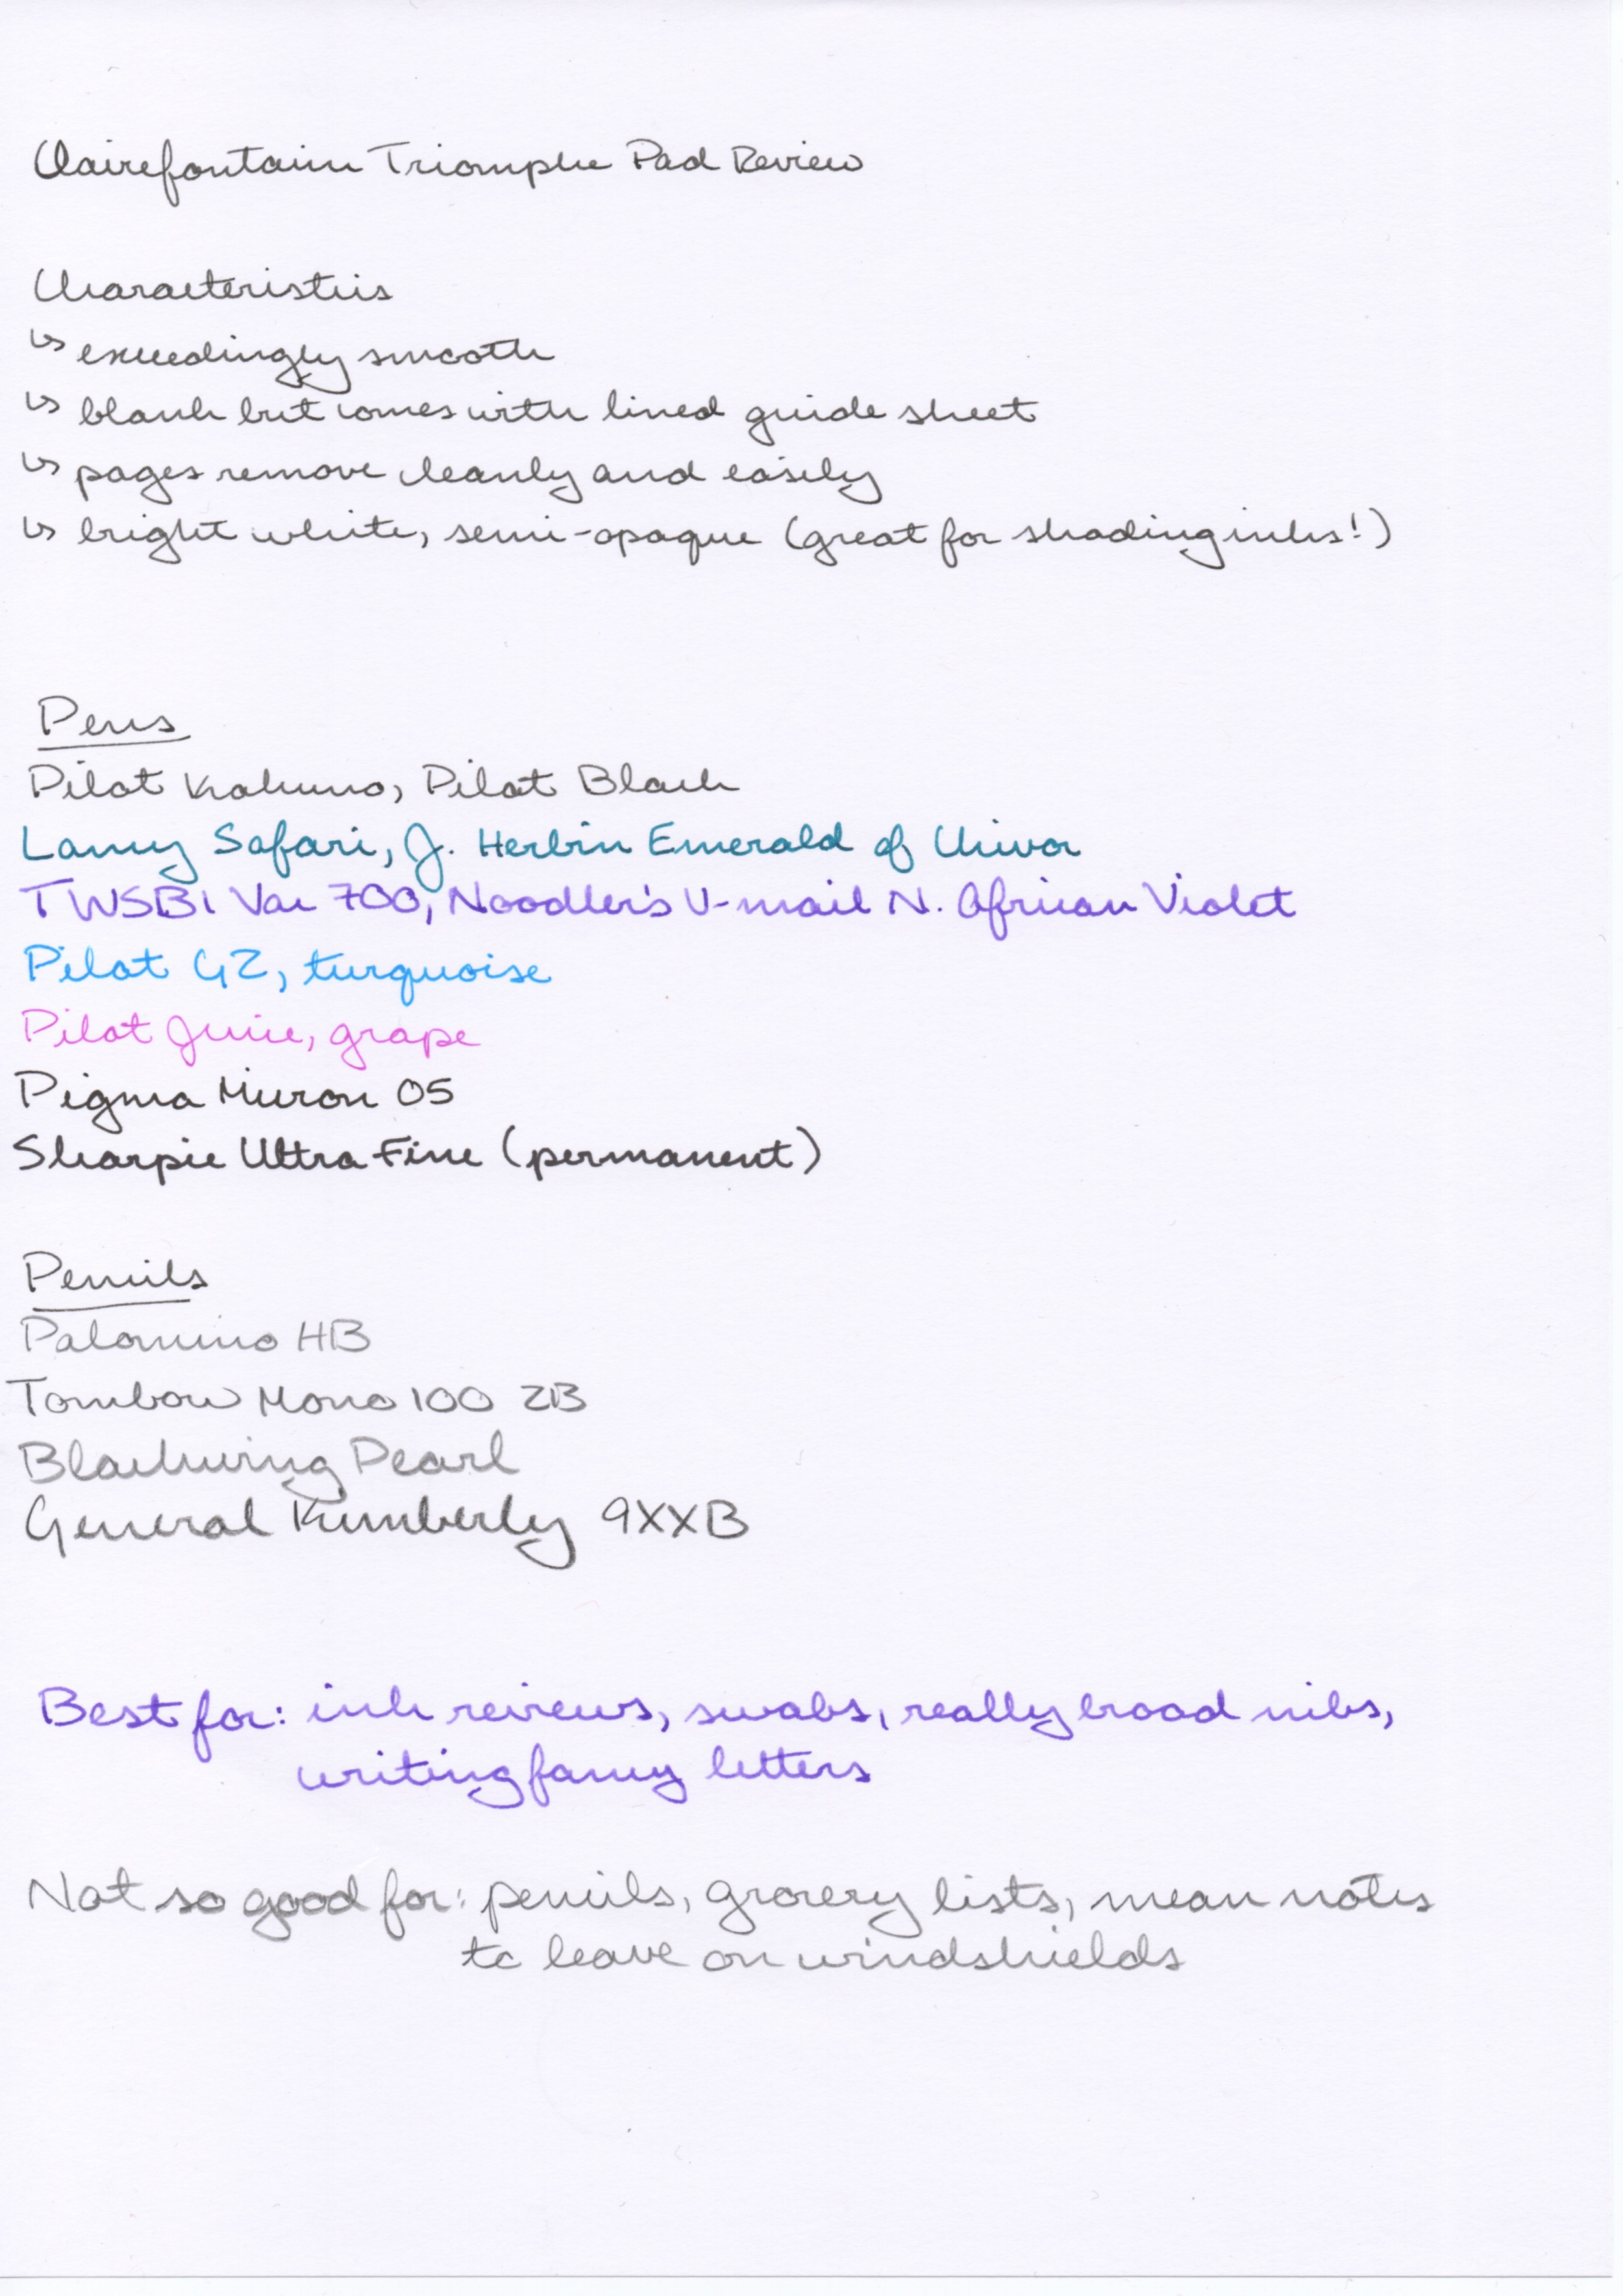 Clairefontain Triomphe Pad Review
Characteristics
↳ exceedingly smooth
↳ blank but comes with lined guide sheet
↳ pages remove cleanly and easily
↳ bright white, semi-opaque (great for shading inks!)
Pens
Pilot Kakuno, Pilot Black
Lamy Safari, J. Herbin Emerald of Chivor
TWSBI Vac 700, Noodler's V-mail N. African Violet
Pilot G2, turquoise
Pilot Juice, grape
Pigma Micron 05
Sharpie Ultra Fine (permanent)
Pencils
Palomino HB
Tombow Mono 100 2B
Blackwing Pearl
General Kimberly 9XXB
Best for: ink reviews, swabs, really broad nibs,
writing fancy letters
Not so good for: pencils, grocery lists, mean notes
to leave on windshields